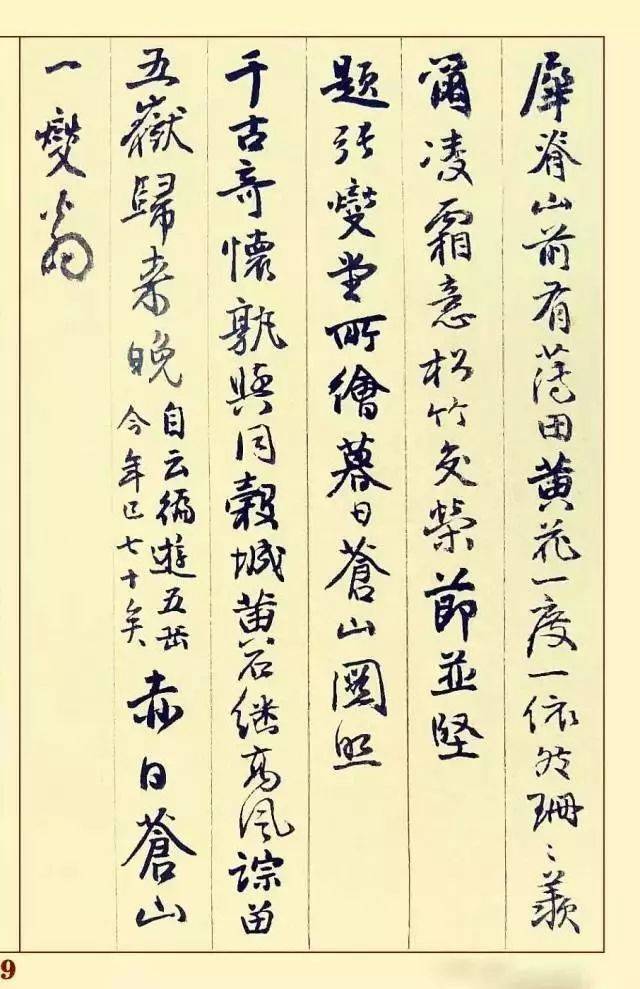 犀脊山前有薄田黄花一度一依然珊〻羡
爾凌霜意松竹交榮節並堅
题张燮堂所繪暮日蒼山圖照
千古奇懷孰與同穀城黄石继高风踪留
五嶽歸来晚自云徧遊五岳今年已七十矣赤日蒼山
一燮翁
9